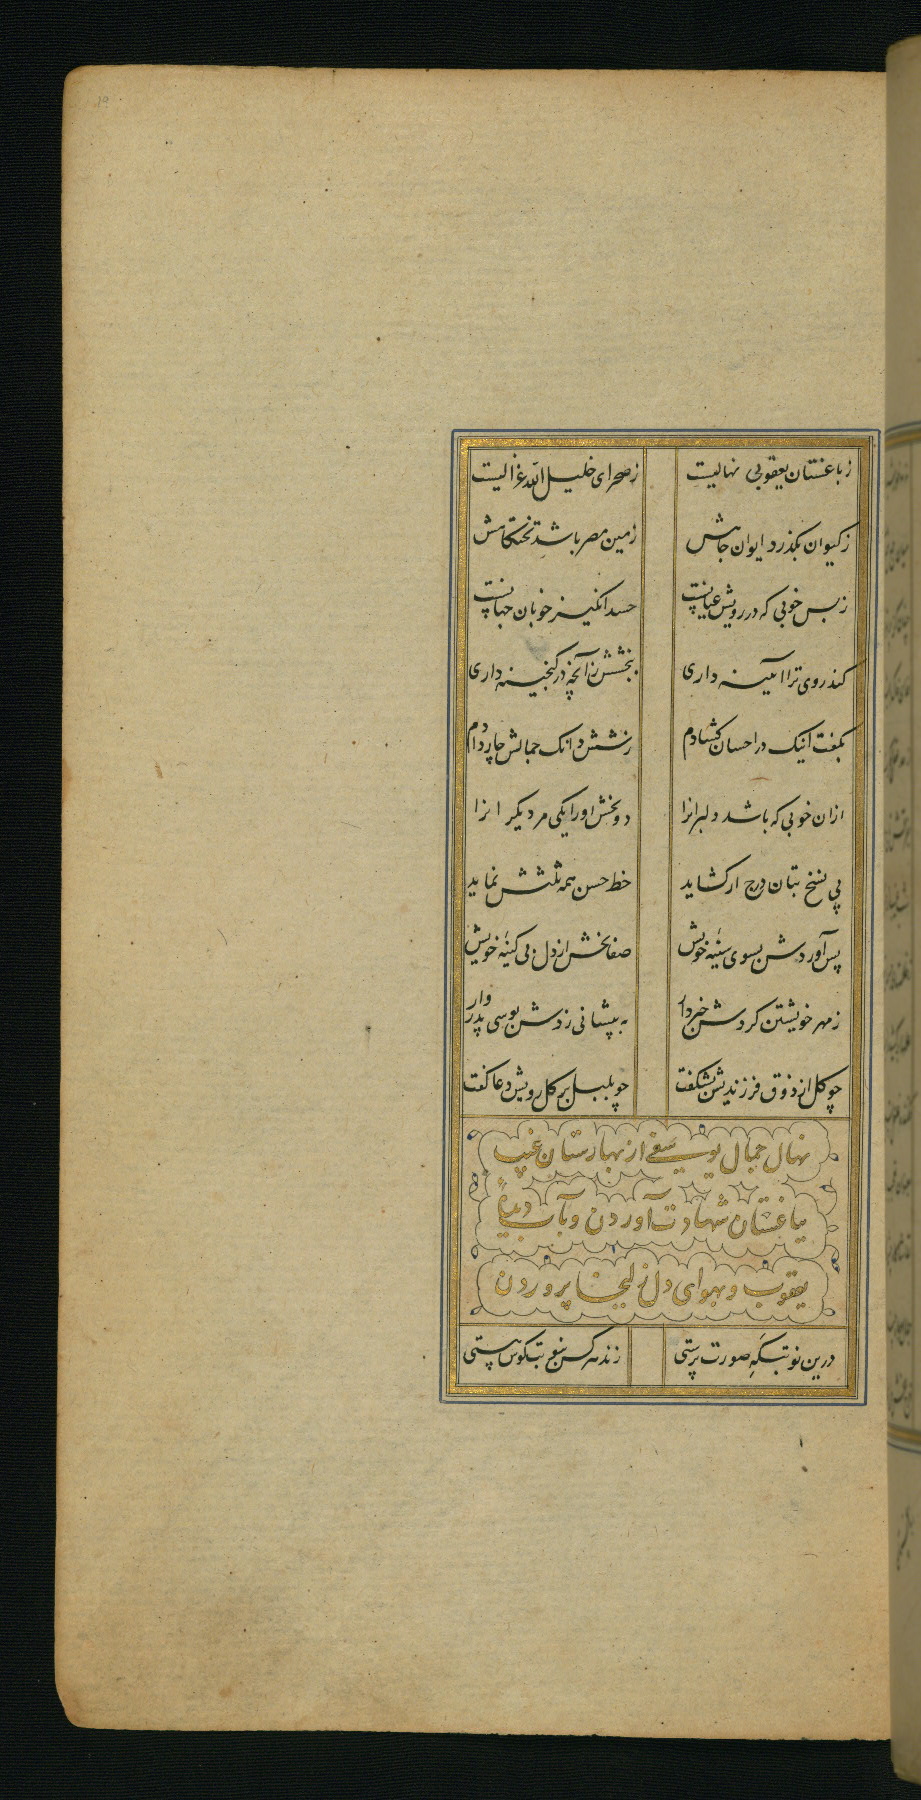 زباغستان یعقوبی نهالیست زصحرای خلیل الله غزالیست
زکیوان بگذرد ایوان جاهش زمین مصر باشد تختگاهش
زبس خوبی که در رویش عیانست حسد انگیز خوبان جهانست
کند روی ترا آیینه داری ببخشش زآنچه در گنجینه داری
بگفت اینک در احسان گشادم زشش دانگ جمالش چار دادم
ازان خوبی که باشد دلبرانرا دو بخش اورا یکی مر دیگرانرا
پی نسخ بتان درج ار کشاید خط حسن همه ثلثش نماید
پس آوردش بسوی سینهٔ خویش صفا بخش از دل بی کینهٔ خویش
زمهر خویشتن کردش خبردار به پیشانی زدش بوسی پدر وار
چو گل از ذوق فرزندیش بشکفت چو بلبل بر گل رویش دعا گفت
نهال جمال یوسفی از بهارستان غیب
بباغستان شهادت آوردن و بآب دیدهٔ
یعقوب و بهوای دل زلیخا پروردن
درین نوبتگه صورت پرستی زند هر کس بنوبت کوس هستی